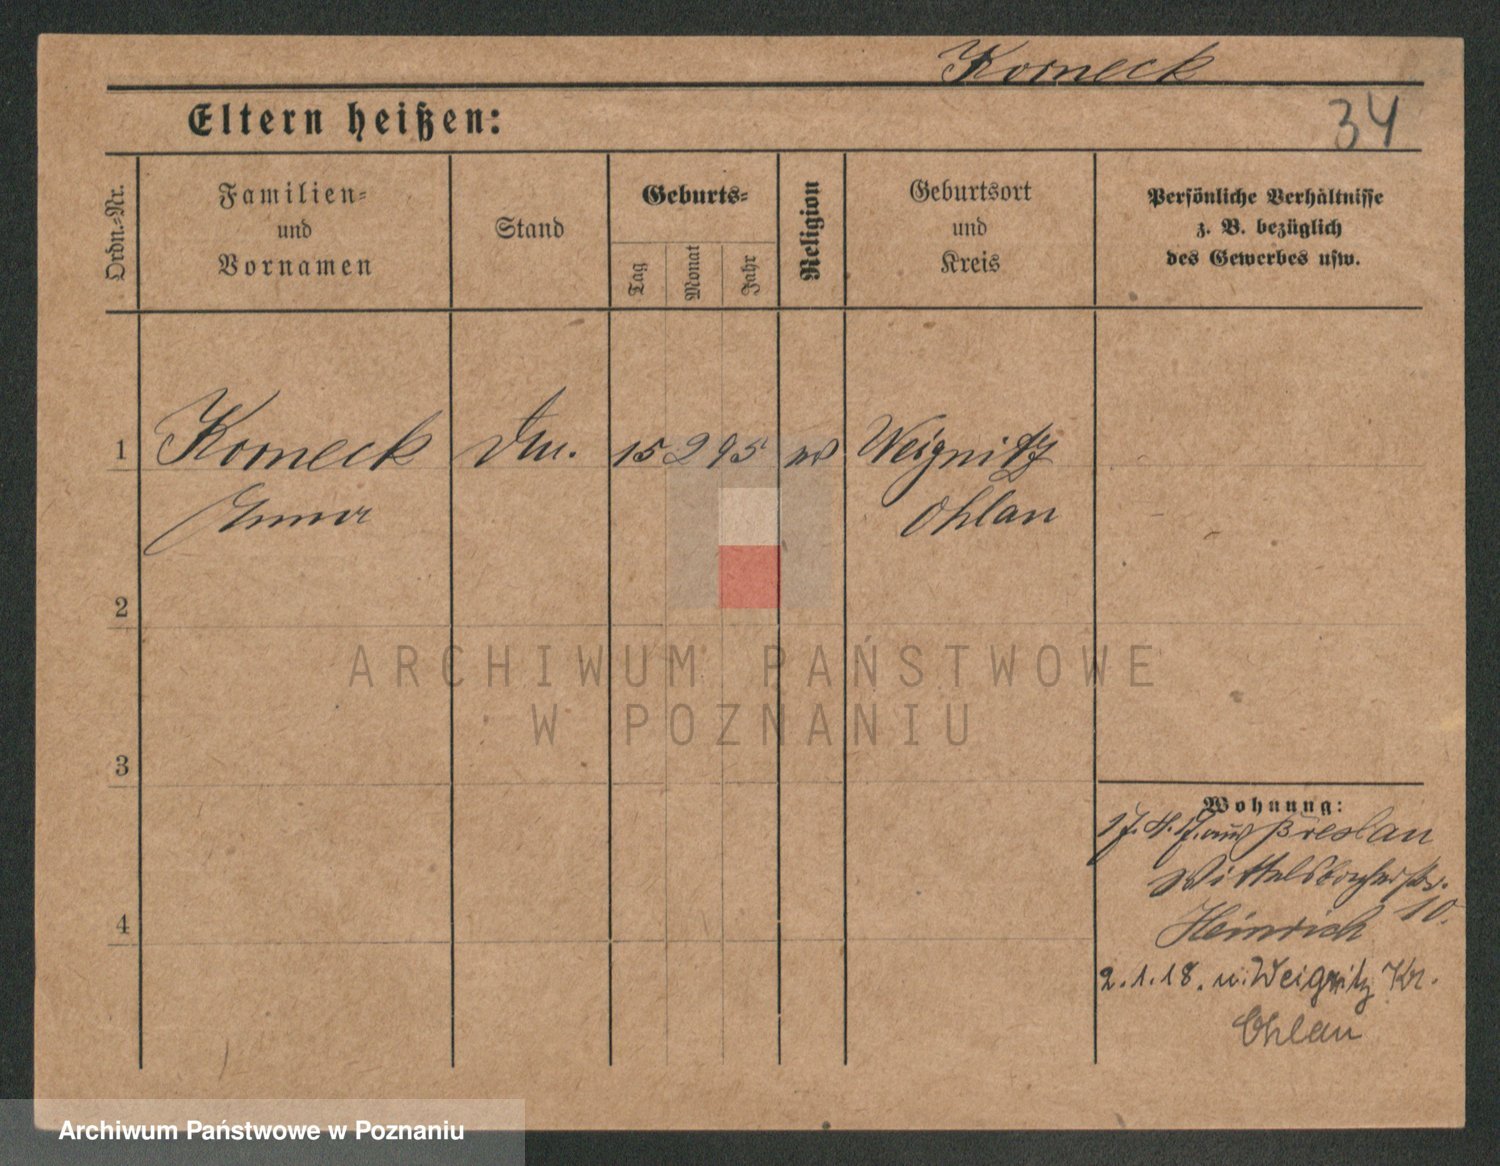 Korneck
34
Eltern heißen:
Ordn.-Nr.
Familien-
und
Vornamen
Stand
Geburts-
Tag
Monat
Jahr
Religion
Geburtsort
und
Kreis
Persönliche Verhältnisse
z. B. bezüglich
des Gewerbes usw.
1 Korneck 15 2 95 ev Weignitz
Ohlau
2
3
4
Wohnung:
17. 4. 17. aus Breslau
Wittelsbacherstr.
10.
Heinrich
2.1.18. n. Weignitz Kr.
Ohlau
ARCHIWUM PAŃSTWOWE
W POZNANIU
Archiwum Państwowe w Poznaniu